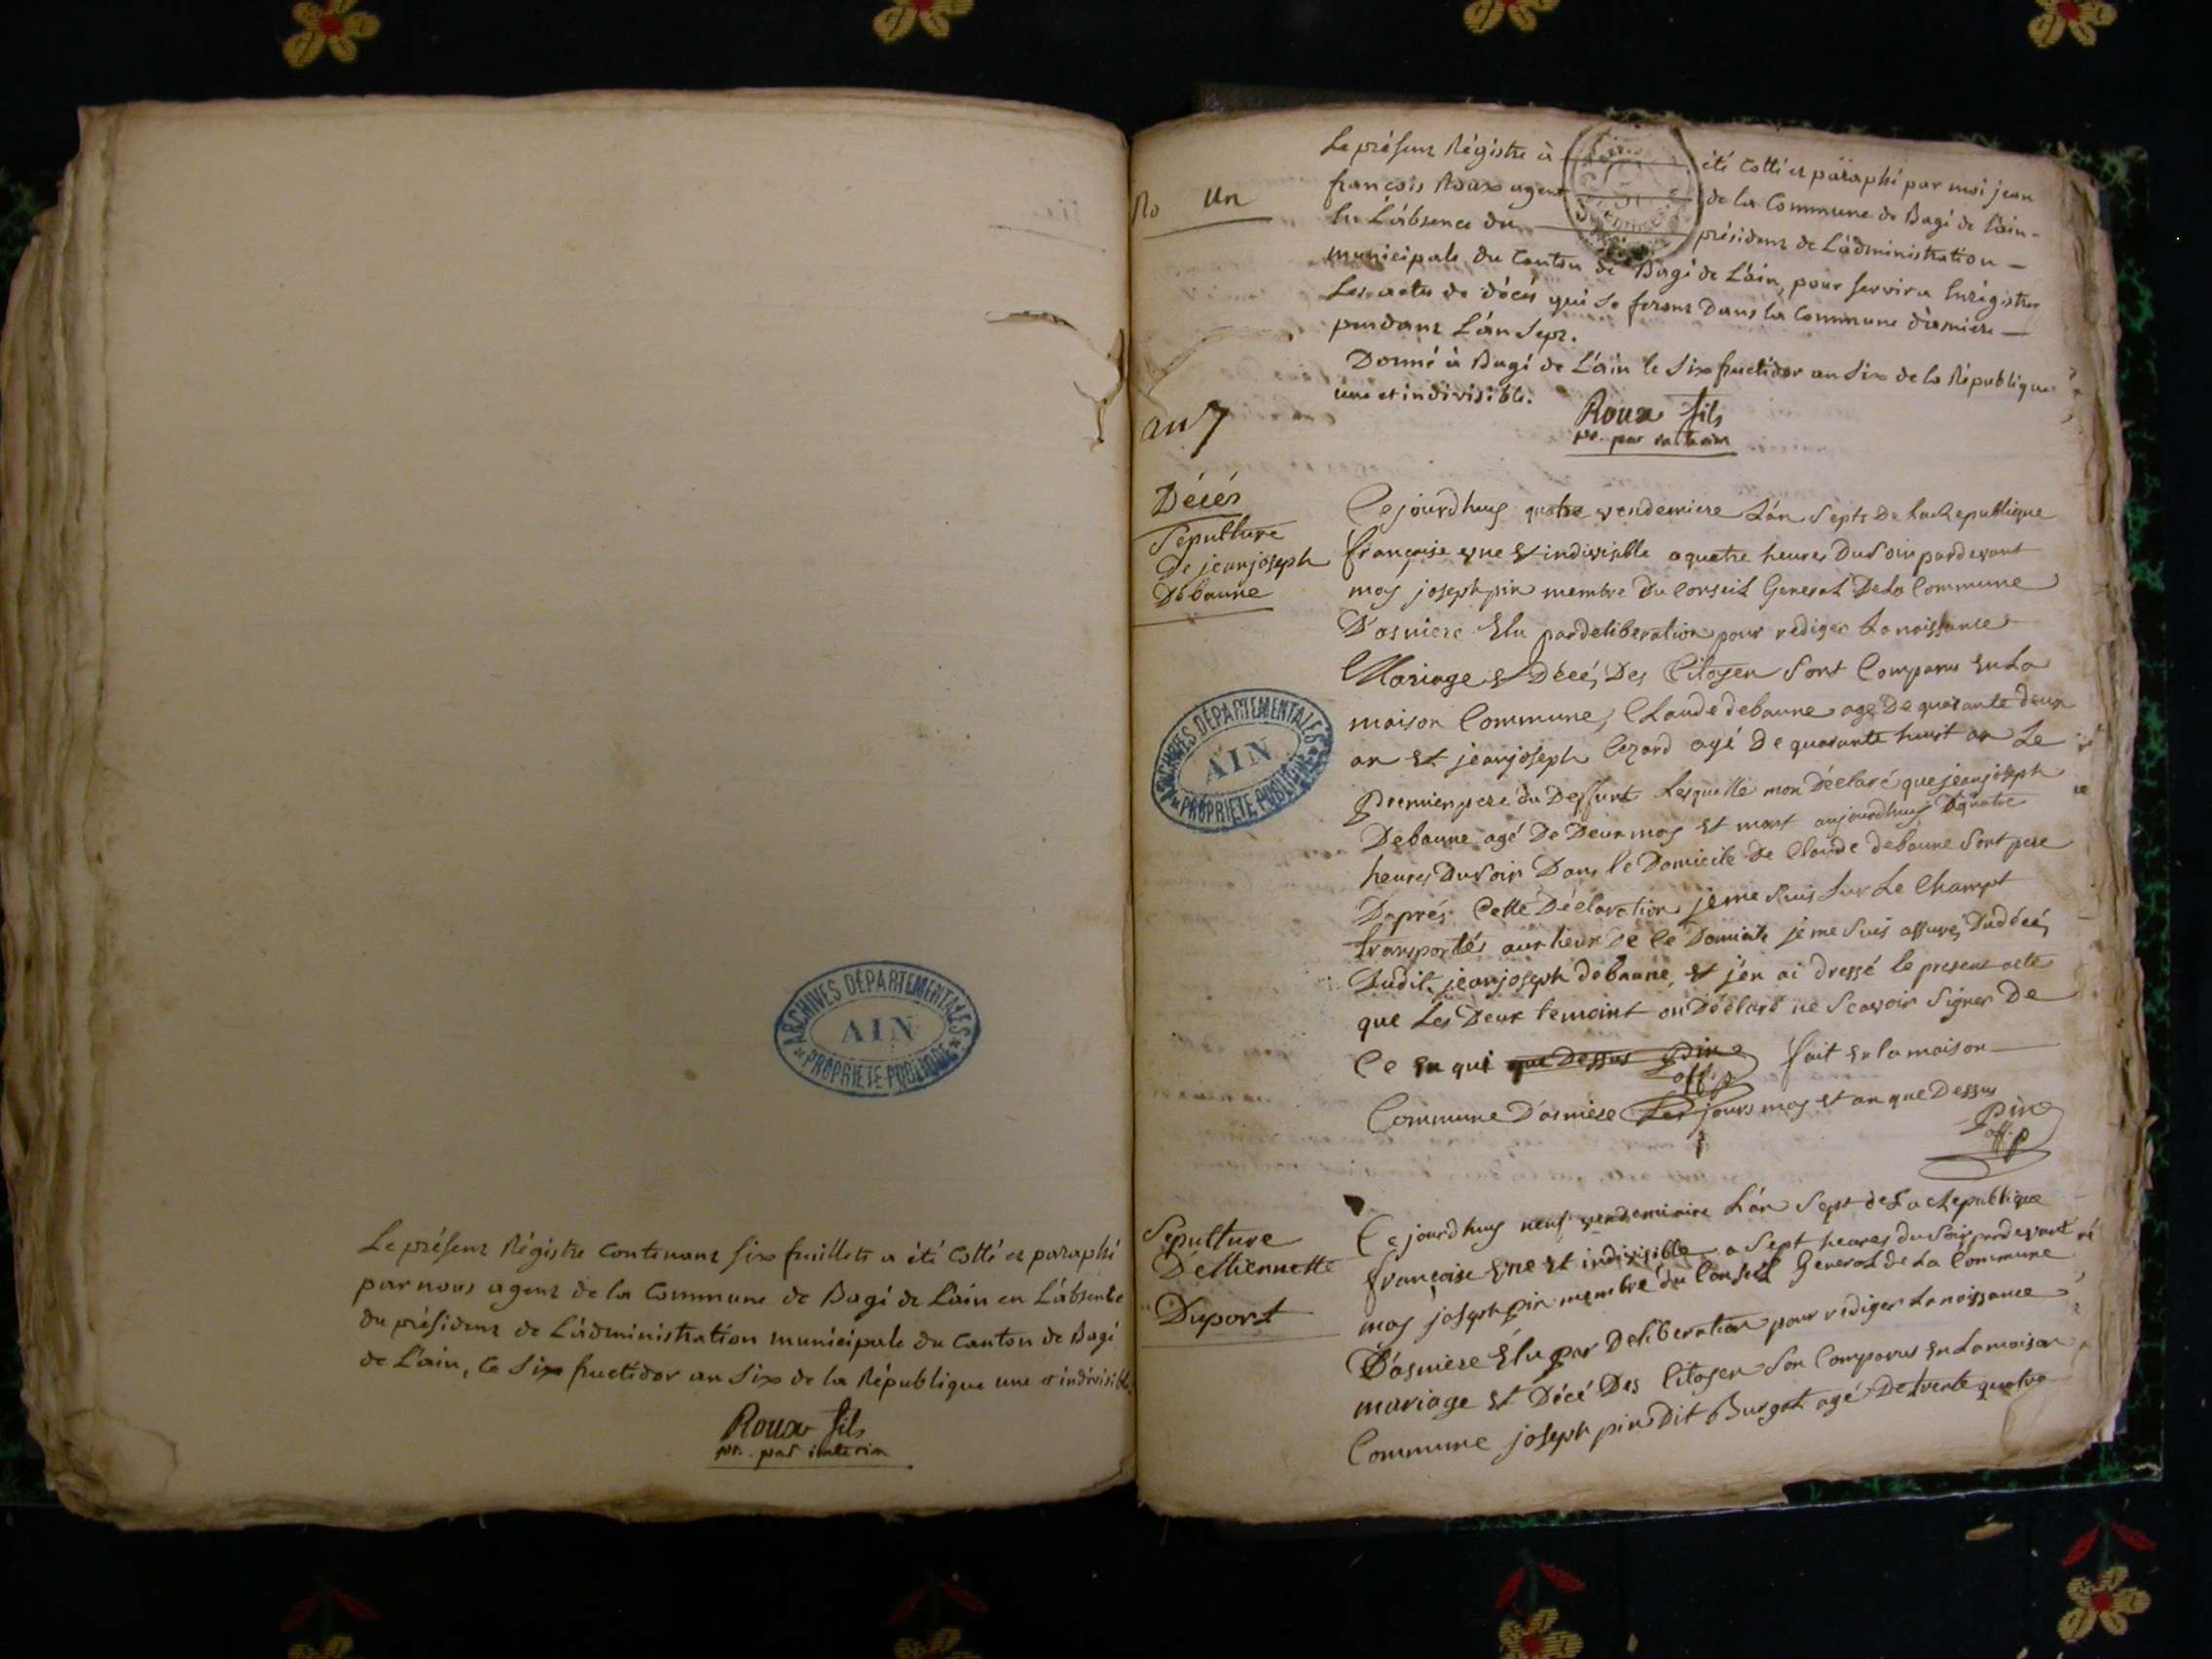 Le présent Régistre contenant six feuillets a été cotté et paraphé
par nous agent de la Commune de Bagé de L'ain en L'absence
du président de L'administration municipale du Canton de Bagé
de L'ain, le six fructidor an six de la République une et indivisible.
Roux fils
pr. par interim
ARCHIVES DÉPARTEMENTALES
AIN
PROPRIETE PUBLIQUE
No Un
Le présent Régistre à été cotté et paraphé par moi jean
françois Roux agent de la Commune de Bagé de l'ain -
En L'absence du président de L'administration -
municipale du Canton de Bagé de L'ain, pour servir a Enrégistrer
Les actes de décés qui se feront Dans la Commune d'asniere -
pendant L'an Sept.
Donné à Bagé de L'ain le Six fructidor an Six de la République
une et indivisible.
Roux fils
pr. par interim
an 7
Décés
Sepulture
De jeanjoseph
Debaune
Cejourdhuy quatre vendemiere L'an Septs De La Republique
française vne Et indivisible a quatre heures Du Soir pardevant
moy joseph pin membre Du Conseil General De La Commune
D'asniere Elu par deliberation pour rediger La naissance
Mariage Et Décé, Des Citoyen Sont Comparus En La
maison Commune, Claude debaune age De quarante deux
an Et jeanjoseph Cezard agé De quarante huit an Le
premier pere du Deffunt Lesquelle mon Déclaré que jeanjoseph
Debaune agé De Deux moy Et mort aujourdhuy A quatre
heures Du Soir Dans le Domicile De Claude debaune Sont pere
Daprés Cette Déclaration je me Suis Sur Le Champt
transportés aux lieux De Ce Domicile je me Suis assuré, Du décé,
Dudit jeanjoseph debaune, Et j'en ai dressé le present acte
que Les Deux temoint on Déclaré ne Scavoir Signer De
Ce En qui que Dessus pin fait En la maison
off. p
Commune D'asniere Les jours moy Et an que Dessus
pin
off. p
ARCHIVES DÉPARTEMENTALES
AIN
PROPRIETE PUBLIQUE
Sepulture
D'Ettiennette
Duport
Cejourdhuy neuf vendemiaire L'an Sept de La Republique
française Vne Et indivisible a Sept heures du Soir pardevant
moy joseph pin membre du Conseil General de La Commune
D'asniere Elu par Deliberation pour rediger La naissance
mariage Et Décé Des Citoyen Son Comparus En La maison
Commune joseph pin Dit Burgat agé De trente quatre